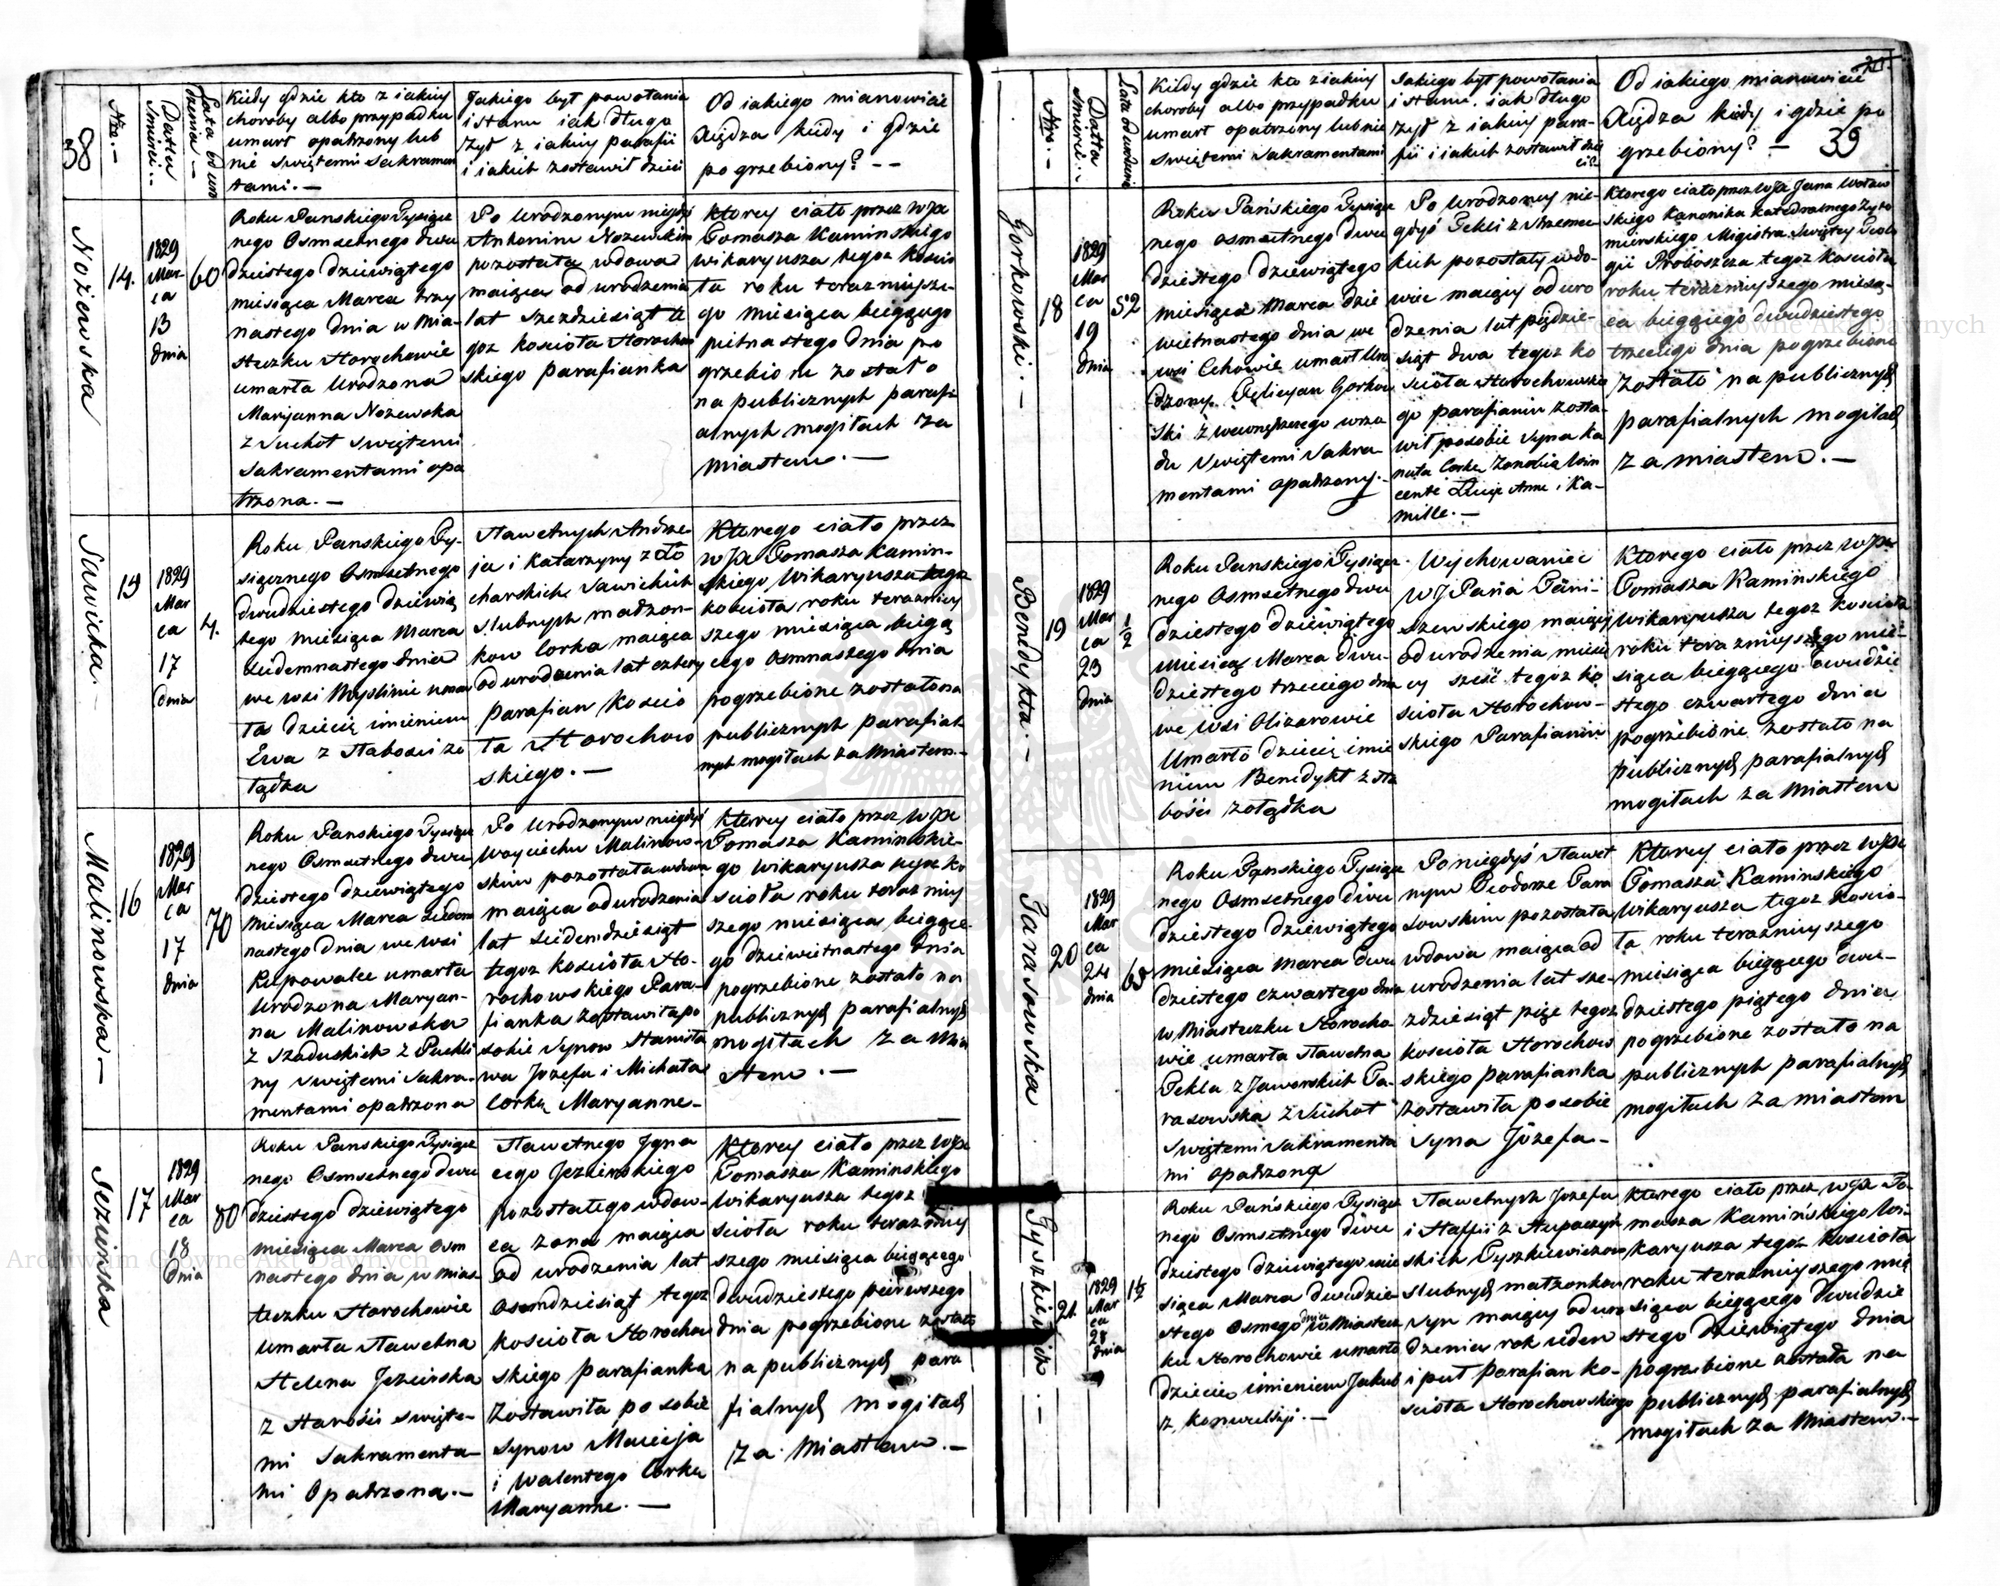 38
Nro. —
Datta Smierci. —
Lata od urodzenia —
Kiedy gdzie kto z jakiey
choroby albo przypadku
umarł opatrzony lub
nie Swiętemi Sakramen
tami. —
Jakiego był powołania
i stanu iak długo
żył z iakiey parafii
i iakich zostawił dzieci
Od iakiego mianowicie
Xiędza kiedy i gdzie
pogrzebiony? — —
Nożewska
14.
1829
Mar
ca
13
dnia
60
Roku Panskiego Tysiącz
nego Osmsetnego dwu
dziestego dziewiątego
miesiąca Marca trzy
nastego dnia w Mia-
steczku Horochowie
umarła Urodzona
Maryanna Nożewska
z Suchot Swiętemi
Sakramentami opa
trzona. —
Po Urodzonym niegdyś
Antonim Nożewskim
pozostała wdowa
maiąca od urodzenia
lat sześdziesiąt te
goż kościoła Horochow
skiego parafianka
ktorey ciało przez WJX
Tomasza Kaminskiego
wikaryusza tegoż kościo
ła roku teraznieysze-
go miesiąca bieżącego
pietnastego dnia po
grzebione zostało
na publicznych parafi
alnych mogiłach za
miastem. —
Sawicka.
15
1829
Mar
ca
17
dnia
4.
Roku Panskiego Ty-
siącznego Osmsetnego
dwudziestego dziewią
tego miesiąca Marca
siedemnastego dnia
we wsi Myslinie umar
ło dziecię imieniem
Ewa z słabości żo
łądka
Sławetnych Andrze
ja i Katarzyny z
charskich Sawickich
slubnych małżon-
kow corka maiąca
od urodzenia lat cztery
parafian kościo
ła Horochow
skiego. —
Ktorego ciało przez
WJX Tomasza Kamin-
skiego Wikaryusza tegoż
kościoła roku terazniey
szego miesiąca bieżą
cego Osmnastego dnia
pogrzebione zostało na
publicznych parafial
nych mogiłach za Miastem. —
Malinowska —
16
1829
Mar
ca
17
dnia
70
Roku Panskiego Tysiącz
nego Osmsetnego dwu
dziestego dziewiątego
miesiąca Marca siedem
nastego dnia we wsi
Kupowalce umarła
Urodzona Maryan-
na Malinowska
z Szaduskich z Puchli
ny Swiętemi Sakra-
mentami opatrzona
Po Urodzonym niegdyś
Woyciechu Malinow-
skim pozostała wdowa
maiąca od urodzenia
lat siedemdziesiąt
tegoż kościoła Ho-
rochowskiego Para-
fianka zostawiła po
sobie Synow Stanisła
wa Jozefa i Michała
Corkę Maryannę —
Ktorey ciało przez WJX
Tomasza Kaminskie-
go wikaryusza tegoż ko
ścioła roku terazniey
szego miesiąca bieżące
go dziewietnastego dnia
pogrzebione zostało na
publicznych parafialnych
mogiłach za Mia
stem. —
Jezierska
17
1829
Mar
ca
18
dnia
80
Roku Panskiego Tysiącz
nego Osmsetnego dwu
dziestego dziewiątego
miesiąca Marca osm
nastego dnia w mias-
teczku Horochowie
umarła Sławetna
Helena Jezierska
z starości swięte-
mi Sakramenta-
mi Opatrzona. —
Sławetnego Igna
cego Jezierskiego
pozostałego wdow-
ca żona maiąca
od urodzenia lat
osmdziesiąt tegoż
kościoła Horochow
skiego parafianka
zostawiła po sobie
synow Macieja
i Walentego Corkę
Maryannę. —
Ktorey ciało przez WJX
Tomasza Kaminskiego
Wikaryusza tegoż
ścioła roku terazniey
szego miesiąca bieżącego
dwudziestego pierwszego
dnia pogrzebione zostało
na publicznych para
fialnych mogiłach
za Miastem. —
Nro. —
Datta Smierci. —
Lata od urodzenia
Kiedy gdzie kto z iakiey
choroby albo przypadku
umarł opatrzony lub nie
Swiętemi Sakramentami
Jakiego był powołania
i stanu. iak długo
żył z iakiey para-
fii i iakich zostawił dzie
ci?
Od iakiego mianowicie
Xiędza kiedy i gdzie po
grzebiony? —
39
Gorkowski. —
18
1829
Mar
ca
19
dnia
52
Roku Pańskiego Tysiącz
nego osmsetnego dwu
dziestego dziewiątego
miesiąca Marca dzie
wietnastego dnia we
wsi Cehowie umarł Uro
dzony Felicyan Gorkow
ski z wewnętrznego wrzo
du Swiętemi Sakra
mentami opatrzony. —
Po Urodzoney nie-
gdyś Tekli z
kich pozostały wdo-
wiec maiący od uro
dzenia lat pięćdzie-
siąt dwa tegoż ko
ścioła Horochowskie
go parafianin zosta-
wił po sobie Syna Ka
Corkę Zenobię Win
centę Łucję Annę i Ka-
millę. —
Ktorego ciało przez WJX Jana
skiego Kanonika katedralnego Żyto
mierskiego Magistra Swiętey Teolo
gii Proboszcza tegoż kościoła
roku teraznieyszego miesią-
ca bieżącego dwudziestego
trzeciego dnia pogrzebione
zostało na publicznych
parafialnych mogiłach
za miastem. —
Benedykta. —
19
1829
Mar
ca
23
dnia
1/2
Roku Panskiego Tysiącz
nego Osmsetnego dwu
dziestego dziewiątego
miesiąca Marca dwu-
dziestego trzeciego dnia
we Wsi Olizarowie
Umarło dziecię imie
niem Benedykt z sła
bości żołądka
Wychowaniec
WJ Pana
szewskiego maiący
od urodzenia miesię
cy sześć tegoż ko
ścioła Horochow-
skiego Parafianin
Ktorego ciało przez WJX
Tomasza Kamińskiego
wikaryusza tegoż kościoła
roku teraznieyszego mie-
siąca bieżącego dwudzie
stego czwartego dnia
pogrzebione zostało na
publicznych parafialnych
mogiłach za Miastem
Tarasowska
20
1829
Mar
ca
24
dnia
65
Roku Pańskiego Tysiącz
nego Osmsetnego dwu
dziestego dziewiątego
miesiąca marca dwu
dziestego czwartego dnia
w Miasteczku Horocho-
wie umarła Sławetna
Tekla z Jaworskich Ta-
rasowska z Suchot
Swiętemi Sakramenta
mi opatrzona
Po niegdyś Sławet
nym Teodorze Tara
sowskim pozostała
wdowa maiąca od
urodzenia lat sze-
śdziesiąt pięć tegoż
kościoła Horochow
skiego parafianka
zostawiła po sobie
Syna Józefa —
Ktorey ciało przez WJX
Tomasza Kaminskiego
Wikaryusza tegoż kościo-
ła roku teraznieyszego
miesiąca bieżącego dwu-
dziestego piątego dnia
pogrzebione zostało na
publicznych parafialnych
mogiłach za miastem
Tyszkiewicz. —
21
1829
Mar
ca
28
dnia
1 1/2
Roku Pańskiego Tysiącz
nego Osmsetnego dwu
dziestego dziewiątego mie
siąca Marca dwudzie
stego Osmego dnia w Miastecz
ku Horochowie umarło
dziecie imieniem Jakub
z konwulsyi. —
Sławetnych Jozefa
i
skich Tyszkiewiczow
slubnych małżonkow
syn maiący od uro
dzenia rok ieden
i puł Parafian ko-
ścioła Horochowskiego
Ktorego ciało przez WJX To-
masza Kamińskiego Wi-
karyusza tegoż kościoła
roku teraznieyszego mie
siąca bieżącego dwudzie
stego dziewiątego dnia
pogrzebione zostało na
publicznych parafialnych
mogiłach za Miastem. —
Archiwum Główne Akt Dawnych
Archiwum Główne Akt Dawnych